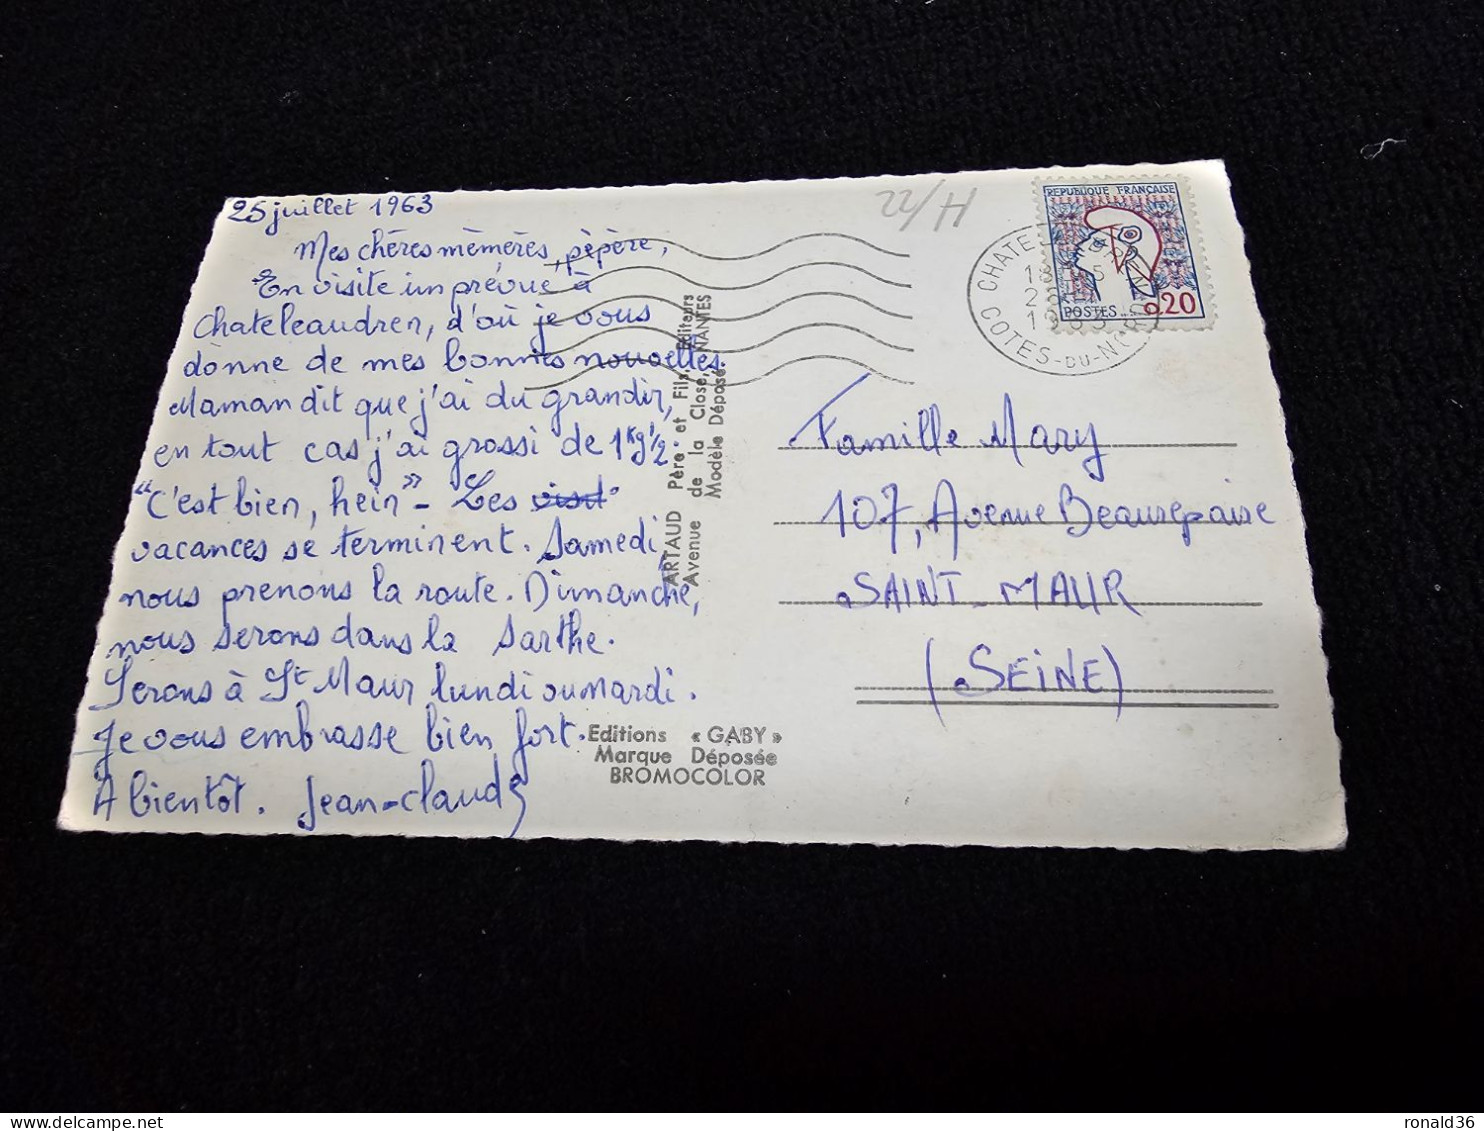 25 juillet 1963
Mes chères mèmères, pèpère,
En visite imprévue à
Chateleaudren, d'où je vous
donne de mes bonnes nouvelles.
Maman dit que j'ai du grandir,
en tout cas j'ai grossi de 1Kg 1/2
"C'est bien, hein" - Les visit
vacances se terminent. Samedi,
nous prenons la route. Dimanche,
nous serons dans la Sarthe.
Serons à St Maur lundi ou mardi.
Je vous embrasse bien fort.
A bientôt. Jean-Claude
ARTAUD Père et Fils, Editeurs
Avenue de la Close, NANTES
Modèle Déposé
Editions « GABY »
Marque Déposée
BROMOCOLOR
H/22
REPUBLIQUE FRANÇAISE
POSTES
0,20
1963
COTES-DU-NORD
Famille Mary
107, Avenue Beaurepaire
SAINT-MAUR
(SEINE)
delcampe.net
ronald36